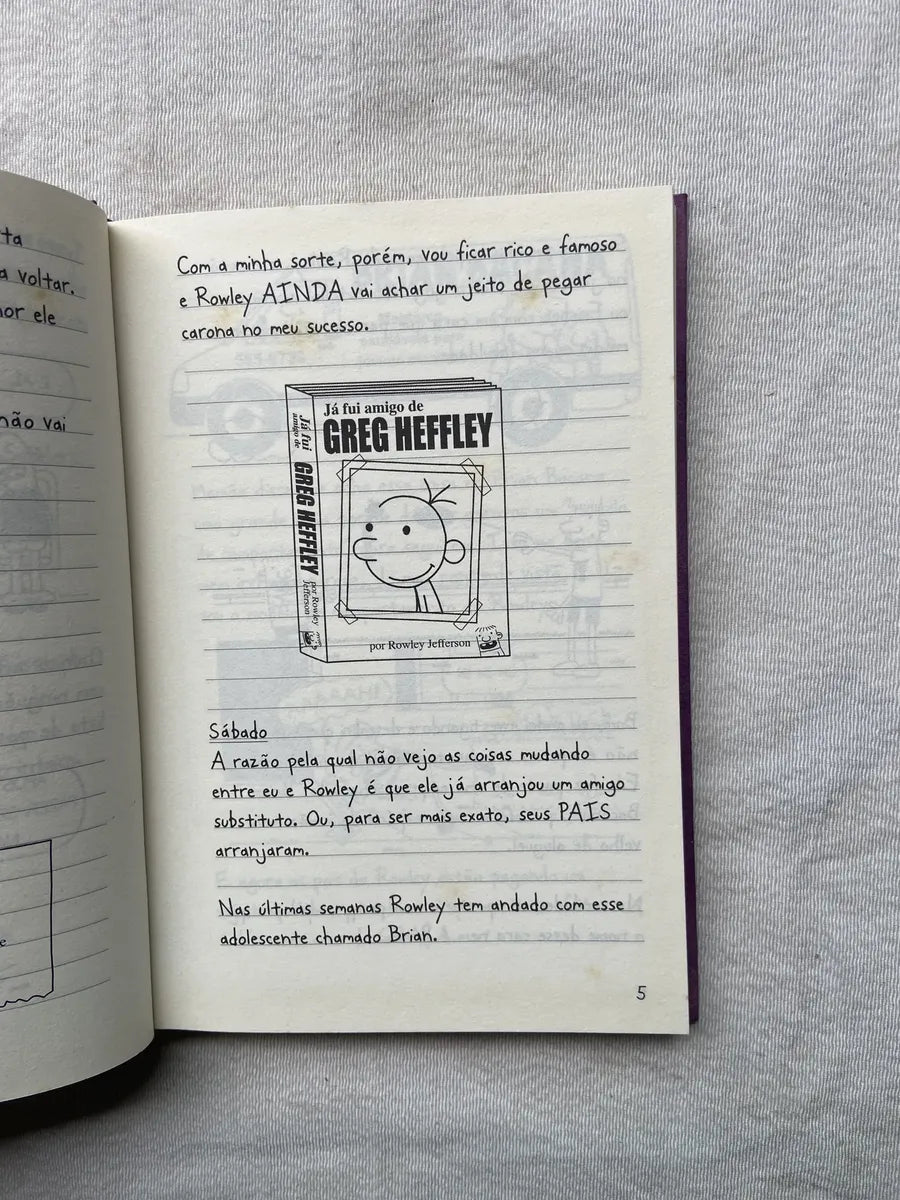 ta
a voltar.
or ele
não vai
e
Com a minha sorte, porém, vou ficar rico e famoso
e Rowley AINDA vai achar um jeito de pegar
carona no meu sucesso.
Já fui amigo de
GREG HEFFLEY
Já fui
amigo de
GREG HEFFLEY
por Rowley
Jefferson
por Rowley Jefferson
Sábado
A razão pela qual não vejo as coisas mudando
entre eu e Rowley é que ele já arranjou um amigo
substituto. Ou, para ser mais exato, seus PAIS
arranjaram.
Nas últimas semanas Rowley tem andado com esse
adolescente chamado Brian.
5